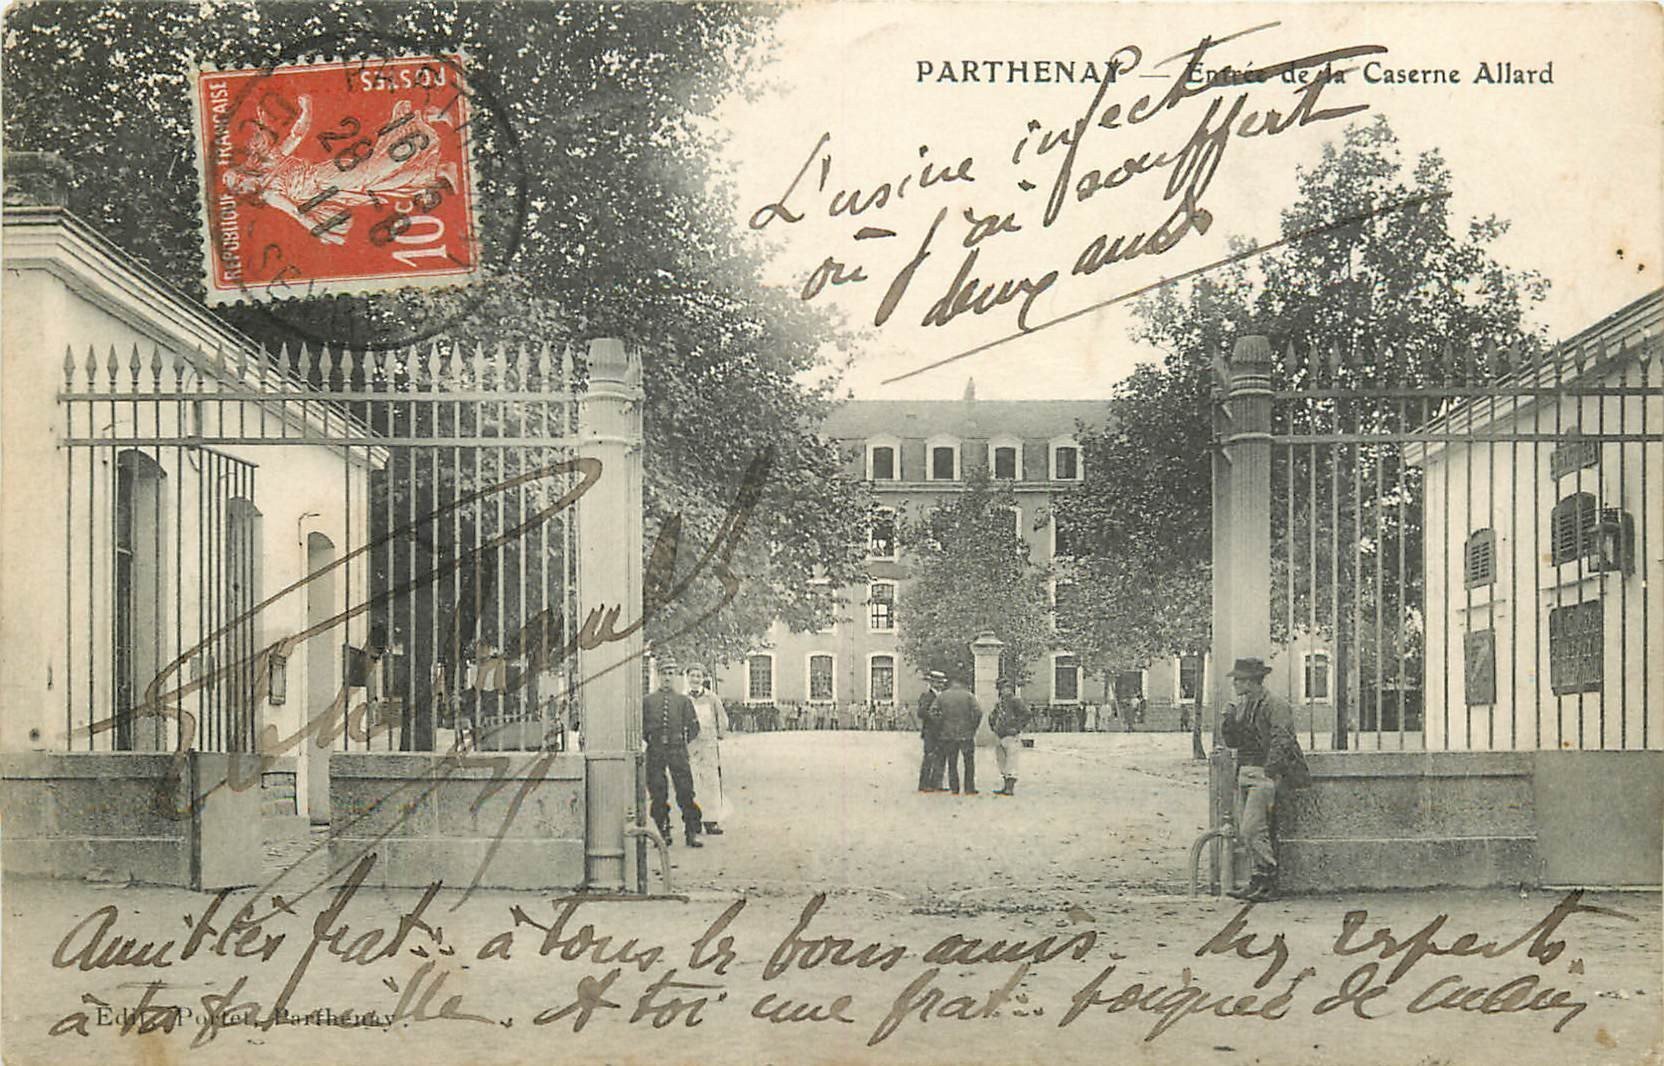 PARTHENAY — Entrée de la Caserne Allard
POSTES
REPUBLIQUE FRANÇAISE
10c
16
28 - 8
11
L'usine infecte
où j'ai souffert
deux ans
Amitiés frat∴ à tous les bons amis. Mes respects
à ta famille. A toi une frat∴ poignée de main
Edit. Portet, Parthenay.